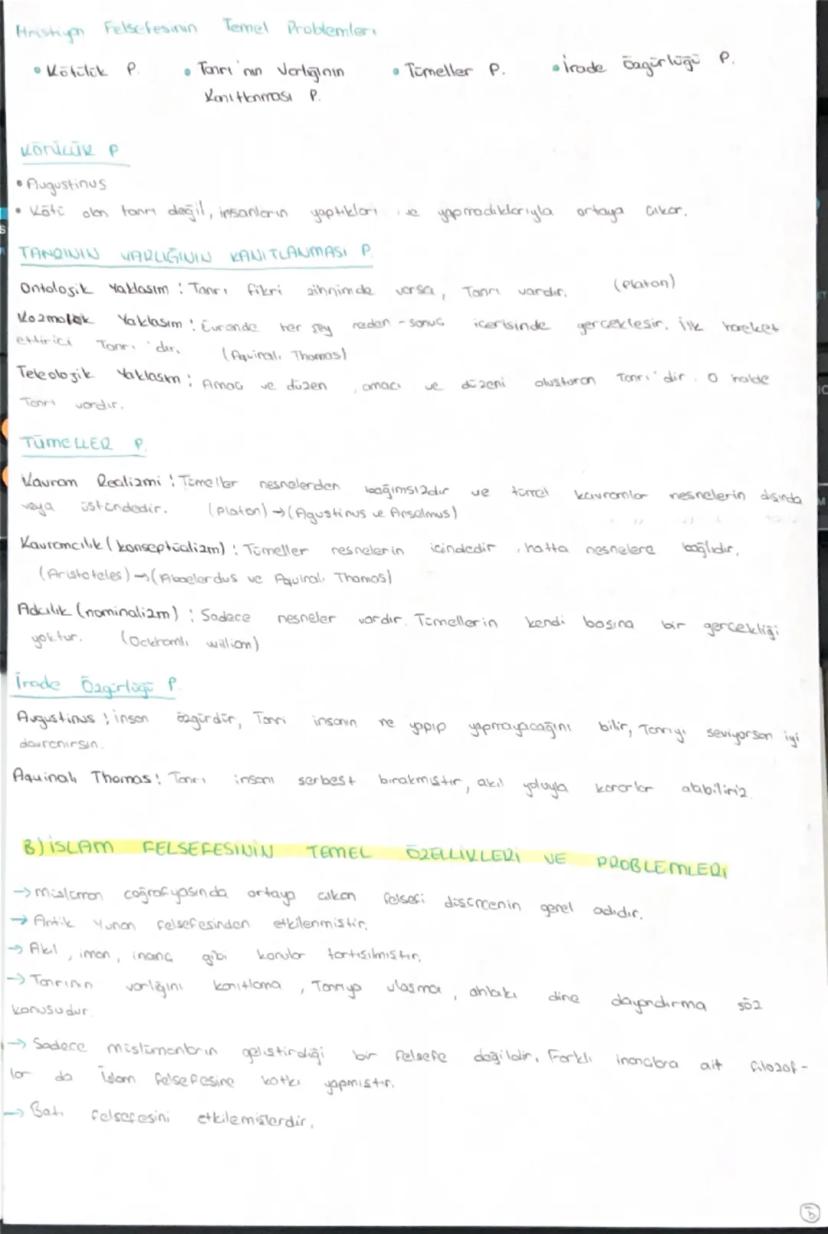 Hristiyan Felsefesinin Temel Problemleri
• Kötülük P. • Tanrı'nın Varlığının • Tümeller P. • İrade Özgürlüğü P.
Kanıtlanması P.
KÖTÜLÜK P
• Augustinus
• Kötü olan tanrı değil, insanların yaptıkları ve yapmadıklarıyla ortaya çıkar.
TANRININ VARLIĞININ KANITLANMASI P.
Ontolojik Yaklaşım : Tanrı fikri zihnimde varsa, Tanrı vardır. (Platon)
Kozmolojik Yaklaşım : Evrende her şey neden-sonuç içerisinde gerçekleşir. İlk hareket
ettirici Tanrı'dır. (Aquinalı Thomas)
Teleolojik Yaklaşım : Amaç ve düzen, amacı ve düzeni oluşturan Tanrı'dır. O halde
Tanrı vardır.
TÜMELLER P.
Kavram Realizmi : Tümeller nesnelerden bağımsızdır ve tümel kavramlar nesnelerin dışında
veya üstündedir. (Platon) → (Agustinus ve Anselmus)
Kavramcılık (konseptüalizm) : Tümeller nesnelerin içindedir, hatta nesnelere bağlıdır.
(Aristoteles) → (Abaelardus ve Aquinalı Thomas)
Adcılık (nominalizm) : Sadece nesneler vardır. Tümellerin kendi başına bir gerçekliği
yoktur. (Ockhamlı william)
İrade Özgürlüğü P.
Augustinus : insan özgürdür, Tanrı insanın ne yapıp yapmayacağını bilir, Tanrıyı seviyorsan iyi
davranırsın.
Aquinalı Thomas : Tanrı insanı serbest bırakmıştır, akıl yoluyla kararlar alabiliriz.
B) İSLAM FELSEFESİNİN TEMEL ÖZELLİKLERİ VE PROBLEMLERİ
→ Müslüman coğrafyasında ortaya çıkan felsefi düşüncenin genel adıdır.
→ Antik Yunan felsefesinden etkilenmiştir.
→ Akıl, iman, inanç gibi konular tartışılmıştır.
→ Tanrının varlığını kanıtlama, Tanrıya ulaşma, ahlakı dine dayandırma söz
konusudur.
→ Sadece müslümanların geliştirdiği bir felsefe değildir. Farklı inançlara ait filozof-
lar da İslam felsefesine katkı yapmıştır.
→ Batı felsefesini etkilemişlerdir.